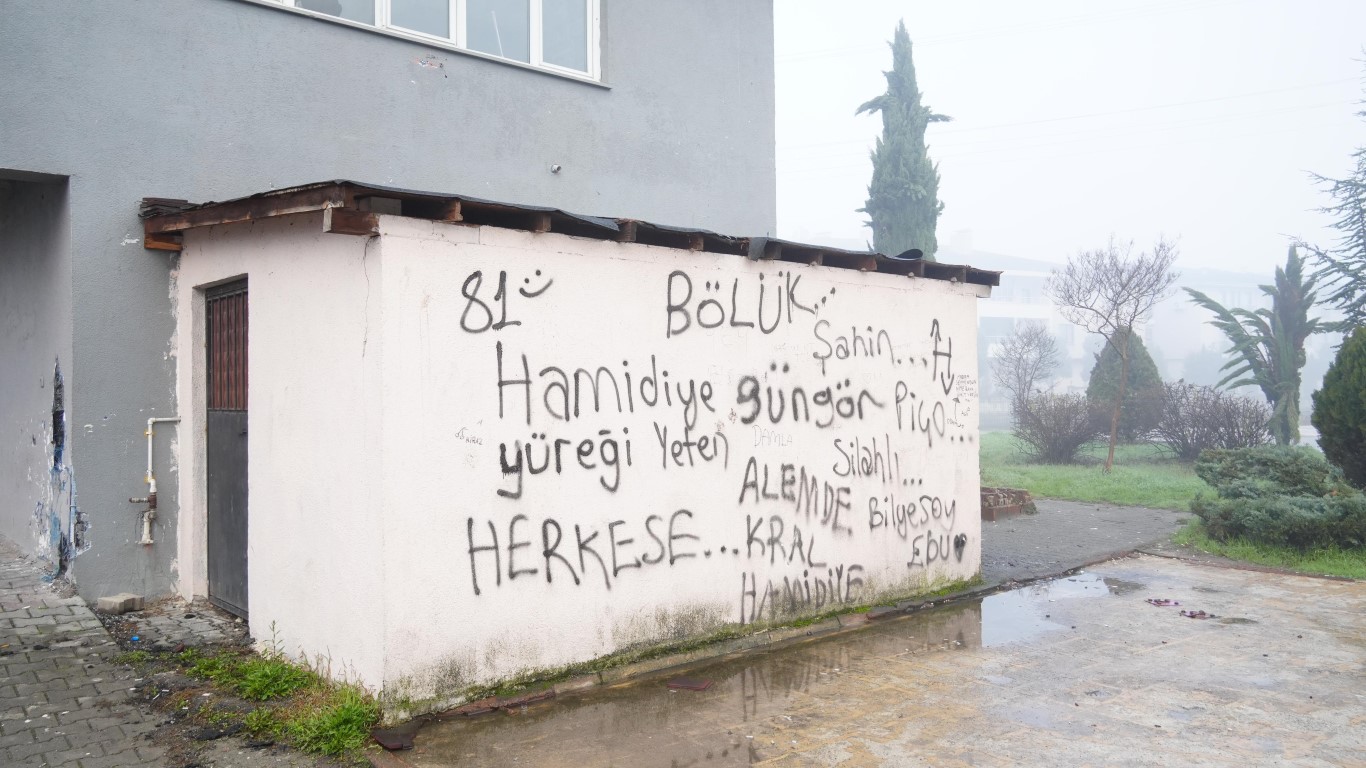 81 BÖLÜK...
Şahin...
Hamidiye güngör Piço...
yüreği Yeten DAMLA Silahlı...
ALEMDE Bilyesoy
HERKESE... KRAL EBU♥
HAMİDİYE